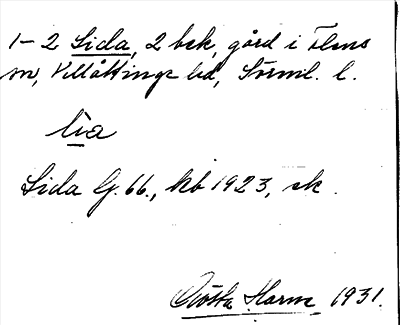 1-2 Sida, 2 bsk, gård i Flens
sn, Villåttinge hd, Söderml. l.
lia
Sida G. 66., kb 1923, sk.
Gösta Harne 1931.